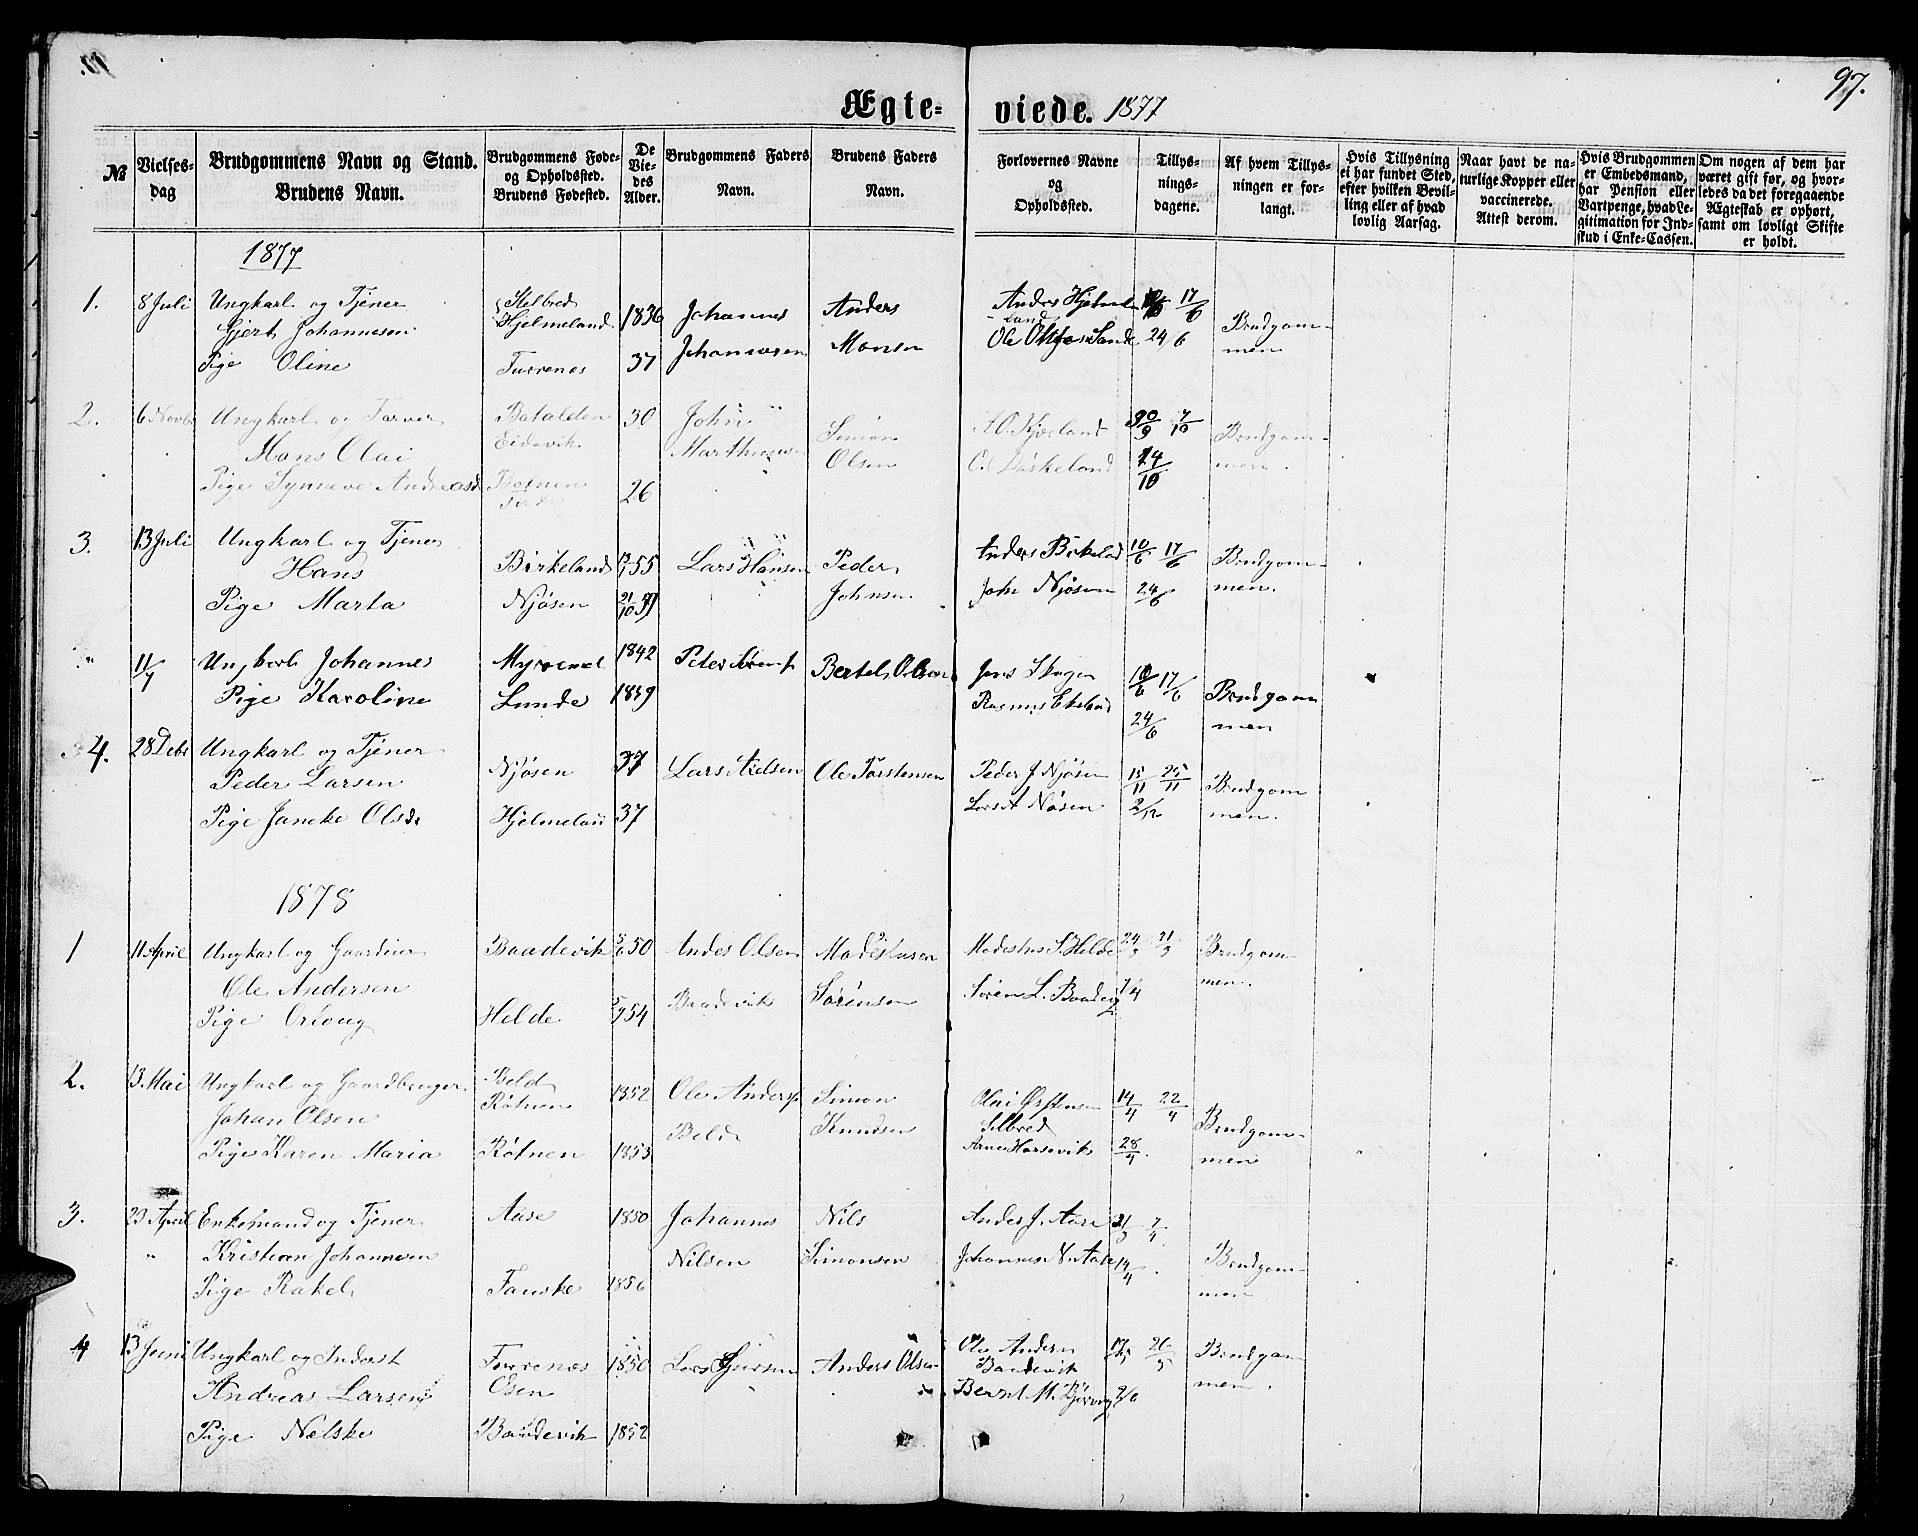 97.
Ægte- viede. 1877
№
Vielses-
dag
Brudgommens Navn og Stand.
Brudens Navn.
Brudgommens Føde-
og Opholdssted.
Brudens Fødested.
De
Vie-
des
Alder.
Brudgommens Faders
Navn.
Brudens Faders
Navn.
Forlovernes Navne
og
Opholdssted.
Tillys-
nings-
dagene.
Af hvem Tillys-
ningen er for-
langt.
Hvis Tillysning
ei har fundet Sted,
efter hvilken Bevil-
ling eller af hvad
lovlig Aarsag.
Naar havt de na-
turlige Kopper eller
vaccinerede.
Attest derom.
Hvis Brudgommen
er Embedsmand,
har Pension eller
Vartpenge, hvad Le-
gitimation for Ind-
skud i Enke-Cassen.
Om nogen af dem har
været gift før, og hvor-
ledes da det foregaaende
Ægteskab er ophørt,
samt om lovligt Skifte
er holdt.
1877
1. 8 Juli Ungkarl og Tjener
Gjert Johannesen
Pige Oline
Selbred
Hjelmeland
Furrenes
1836
37
Johannes
Johannesen
Anders
Monsen
Anders Hjelme-
land
Ole Sande
17/6
24/6
Brudgom-
men
2. 6 Novbr Ungkarl og Farver
Hans Olai
Pige Synneve Andreasd
Batalden
Eidevik
Botnen
Førde
30
26
John
Marthinusen
Simon
Olsen
A O Kjeland
O. Døskeland
30/9 7/10
14/10
Brudgom-
men.
3. 13 Juli Ungkarl og Tjener
Hans
Pige Marta
Birkeland
Njøsen
55
21/10
Lars Hansen
Peder
Johnsen
Anders Birkeland
John Njøsen
10/6 17/6
24/6
Brudgom-
men.
" 11/7 Ungkarl Johannes
Pige Karoline
Myremel
Lunde
1842
1849
Peter
Bertel Olsen
Jens Skogen
Rasmus Ekeland
10/6 17/6
24/6
Brudgom
men
4. 28 Debr Ungkarl og Tjener
Peder Larsen
Pige Janeke Olsdr
Njøsen
Hjelmelan
37
37
Lars Axelsen
Ole Torstensen
Peder J Njøsen
Lars A Nøsen
15/11 25/11
2/12
Brudgom
men.
1878
1 11 April Ungkarl og Gaardeier
Ole Andersen
Pige Orloug
Baadevik
Helde
5/6 50
5/9 54
Andes Olsen
Baadevik
Modestusen
Sørensen
Modestus S. Helde
Søren L. Baadevig
24/3 31/3
7/4
Brudgom-
men.
2. 13 Mai Ungkarl og Gaardbruger
Johan Olsen
Pige Karen Maria
Beld
Røtnen
Røtnen
1852
1853
Ole Anders
Beld
Simon
Knudsen
Olai Østensen
Selbred
Arne Horsevik
14/4 22/4
28/4
Brudgom-
men
3. 23 April Enkemand og Tjener
" Kristian Johannesen
Pige Rakel
Aase
Fanske
1850
1856
Johannes
Nilsen
Nils
Simonsen
Andes J. Aase
Johannes N. Aase
31/3 7/4
14/4
Brudgom-
men
4 13 Juni Ungkarl og Inderst
Andreas Larsen
Pige Nelske
Furrenes
Osen
Baadevik
1850
1852
Lars
Anders Olsen
Ole Andersn
Baadevik
Bernt M.
26/5
2/6
Brudgom
men.